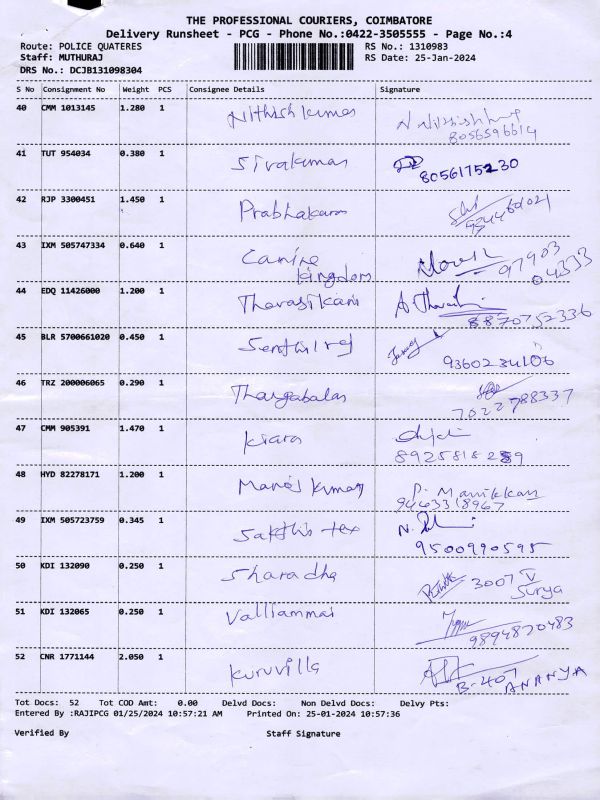 THE PROFESSIONAL COURIERS, COIMBATORE
Delivery Runsheet - PCG - Phone No.:0422-3505555 - Page No.:4
Route: POLICE QUATERES RS No.: 1310983
Staff: MUTHURAJ RS Date: 25-Jan-2024
DRS No.: DCJB131098304
S No Consignment No Weight PCS Consignee Details Signature
40 CMM 1013145 1.280 1 Nithish kumar
8056596614
41 TUT 954034 0.380 1 Sivakumar 8056175230
42 RJP 3300451 1.450 1 Prabhakaran
43 IXM 505747334 0.640 1 Canine kingdom 97903 04333
44 EDQ 11426000 1.200 1 Tharasikani
8870752336
45 BLR 5700661020 0.450 1 Senthilraj
9360234106
46 TRZ 200006065 0.290 1 Thangabalan
7022788337
47 CMM 905391 1.470 1 Kiara
8925818289
48 HYD 82278171 1.200 1 Manoj kumar P. Manikkan
9443318967
49 IXM 505723759 0.345 1 Sakthi tex
9500990595
50 KDI 132090 0.250 1 Sharadha 3007 V
Surya
51 KDI 132065 0.250 1 Valliammai
9894870483
52 CNR 1771144 2.050 1 Kuruvilla
B-407 ANANYA
Tot Docs: 52 Tot COD Amt: 0.00 Delvd Docs: Non Delvd Docs: Delvy Pts:
Entered By :RAJIPCG 01/25/2024 10:57:21 AM Printed On: 25-01-2024 10:57:36
Verified By Staff Signature